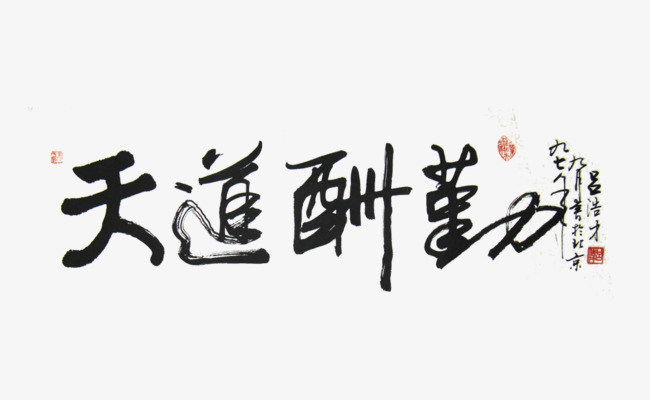 天道酬勤
九七年
九月書於北京
呂浩才